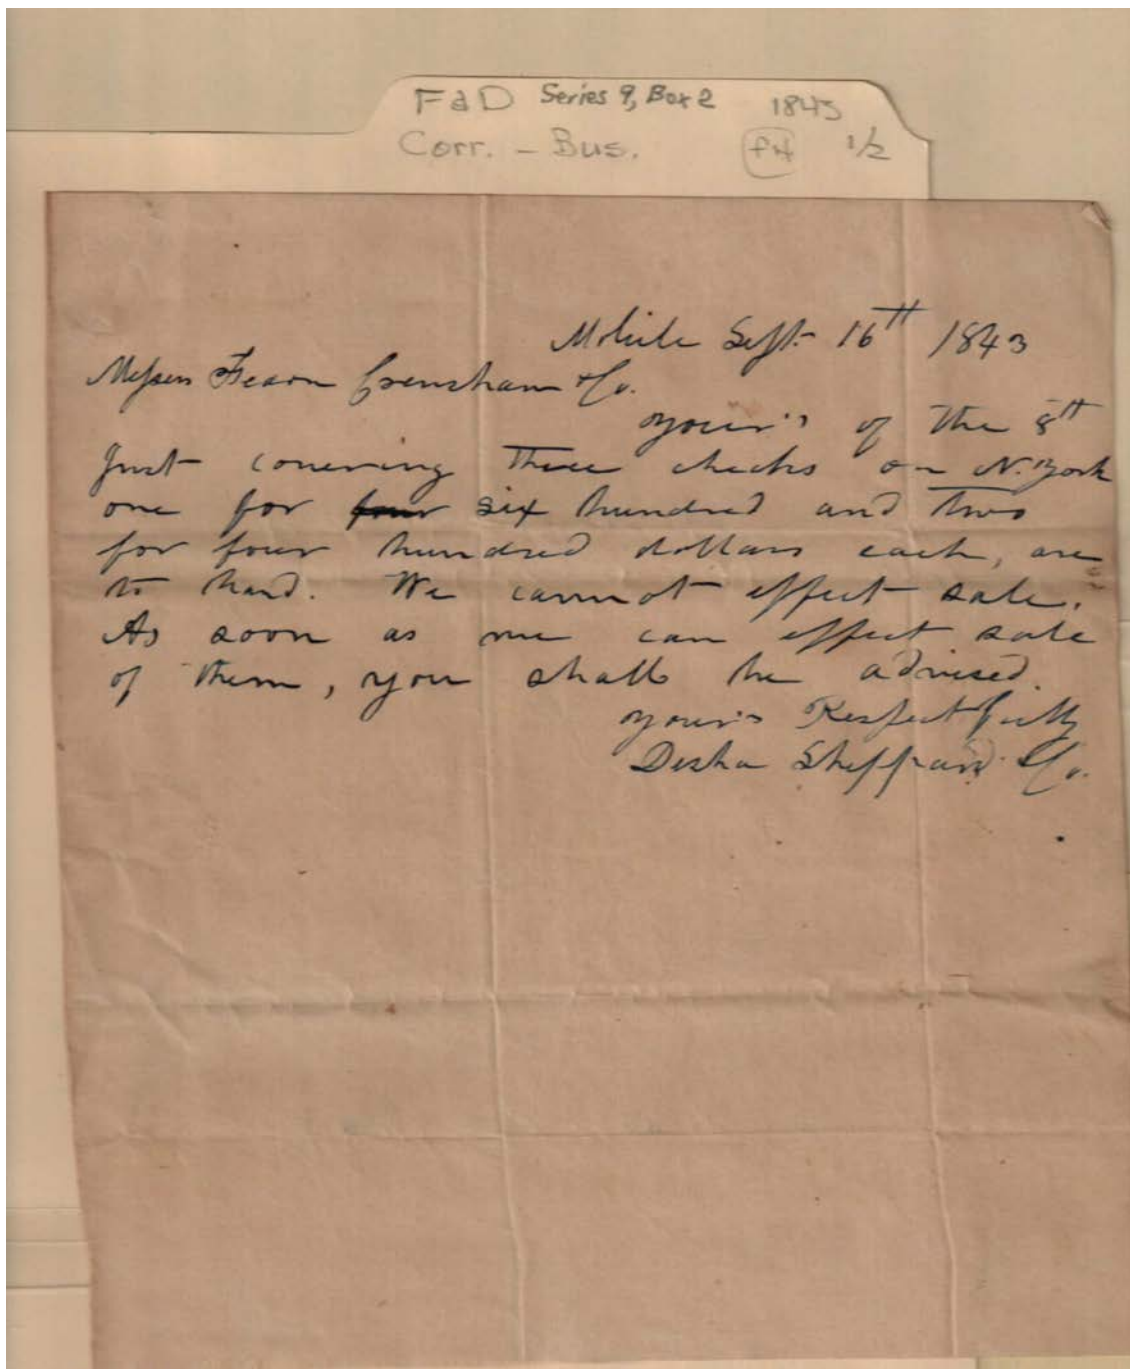 FaD Series 9, Box 2 1843
Corr. - Bus. 1/2
Mobile Sept. 16th 1843
Messrs Fearn Crenshaw & Co.
Your's of the 8th
Inst covering three checks on N. York
one for four six hundred and two
for four hundred dollars each, are
to hand. We cannot effect sale.
As soon as we can effect sale
of them, you shall be advised.
Your's Respectfully
Desha Sheppard & Co.